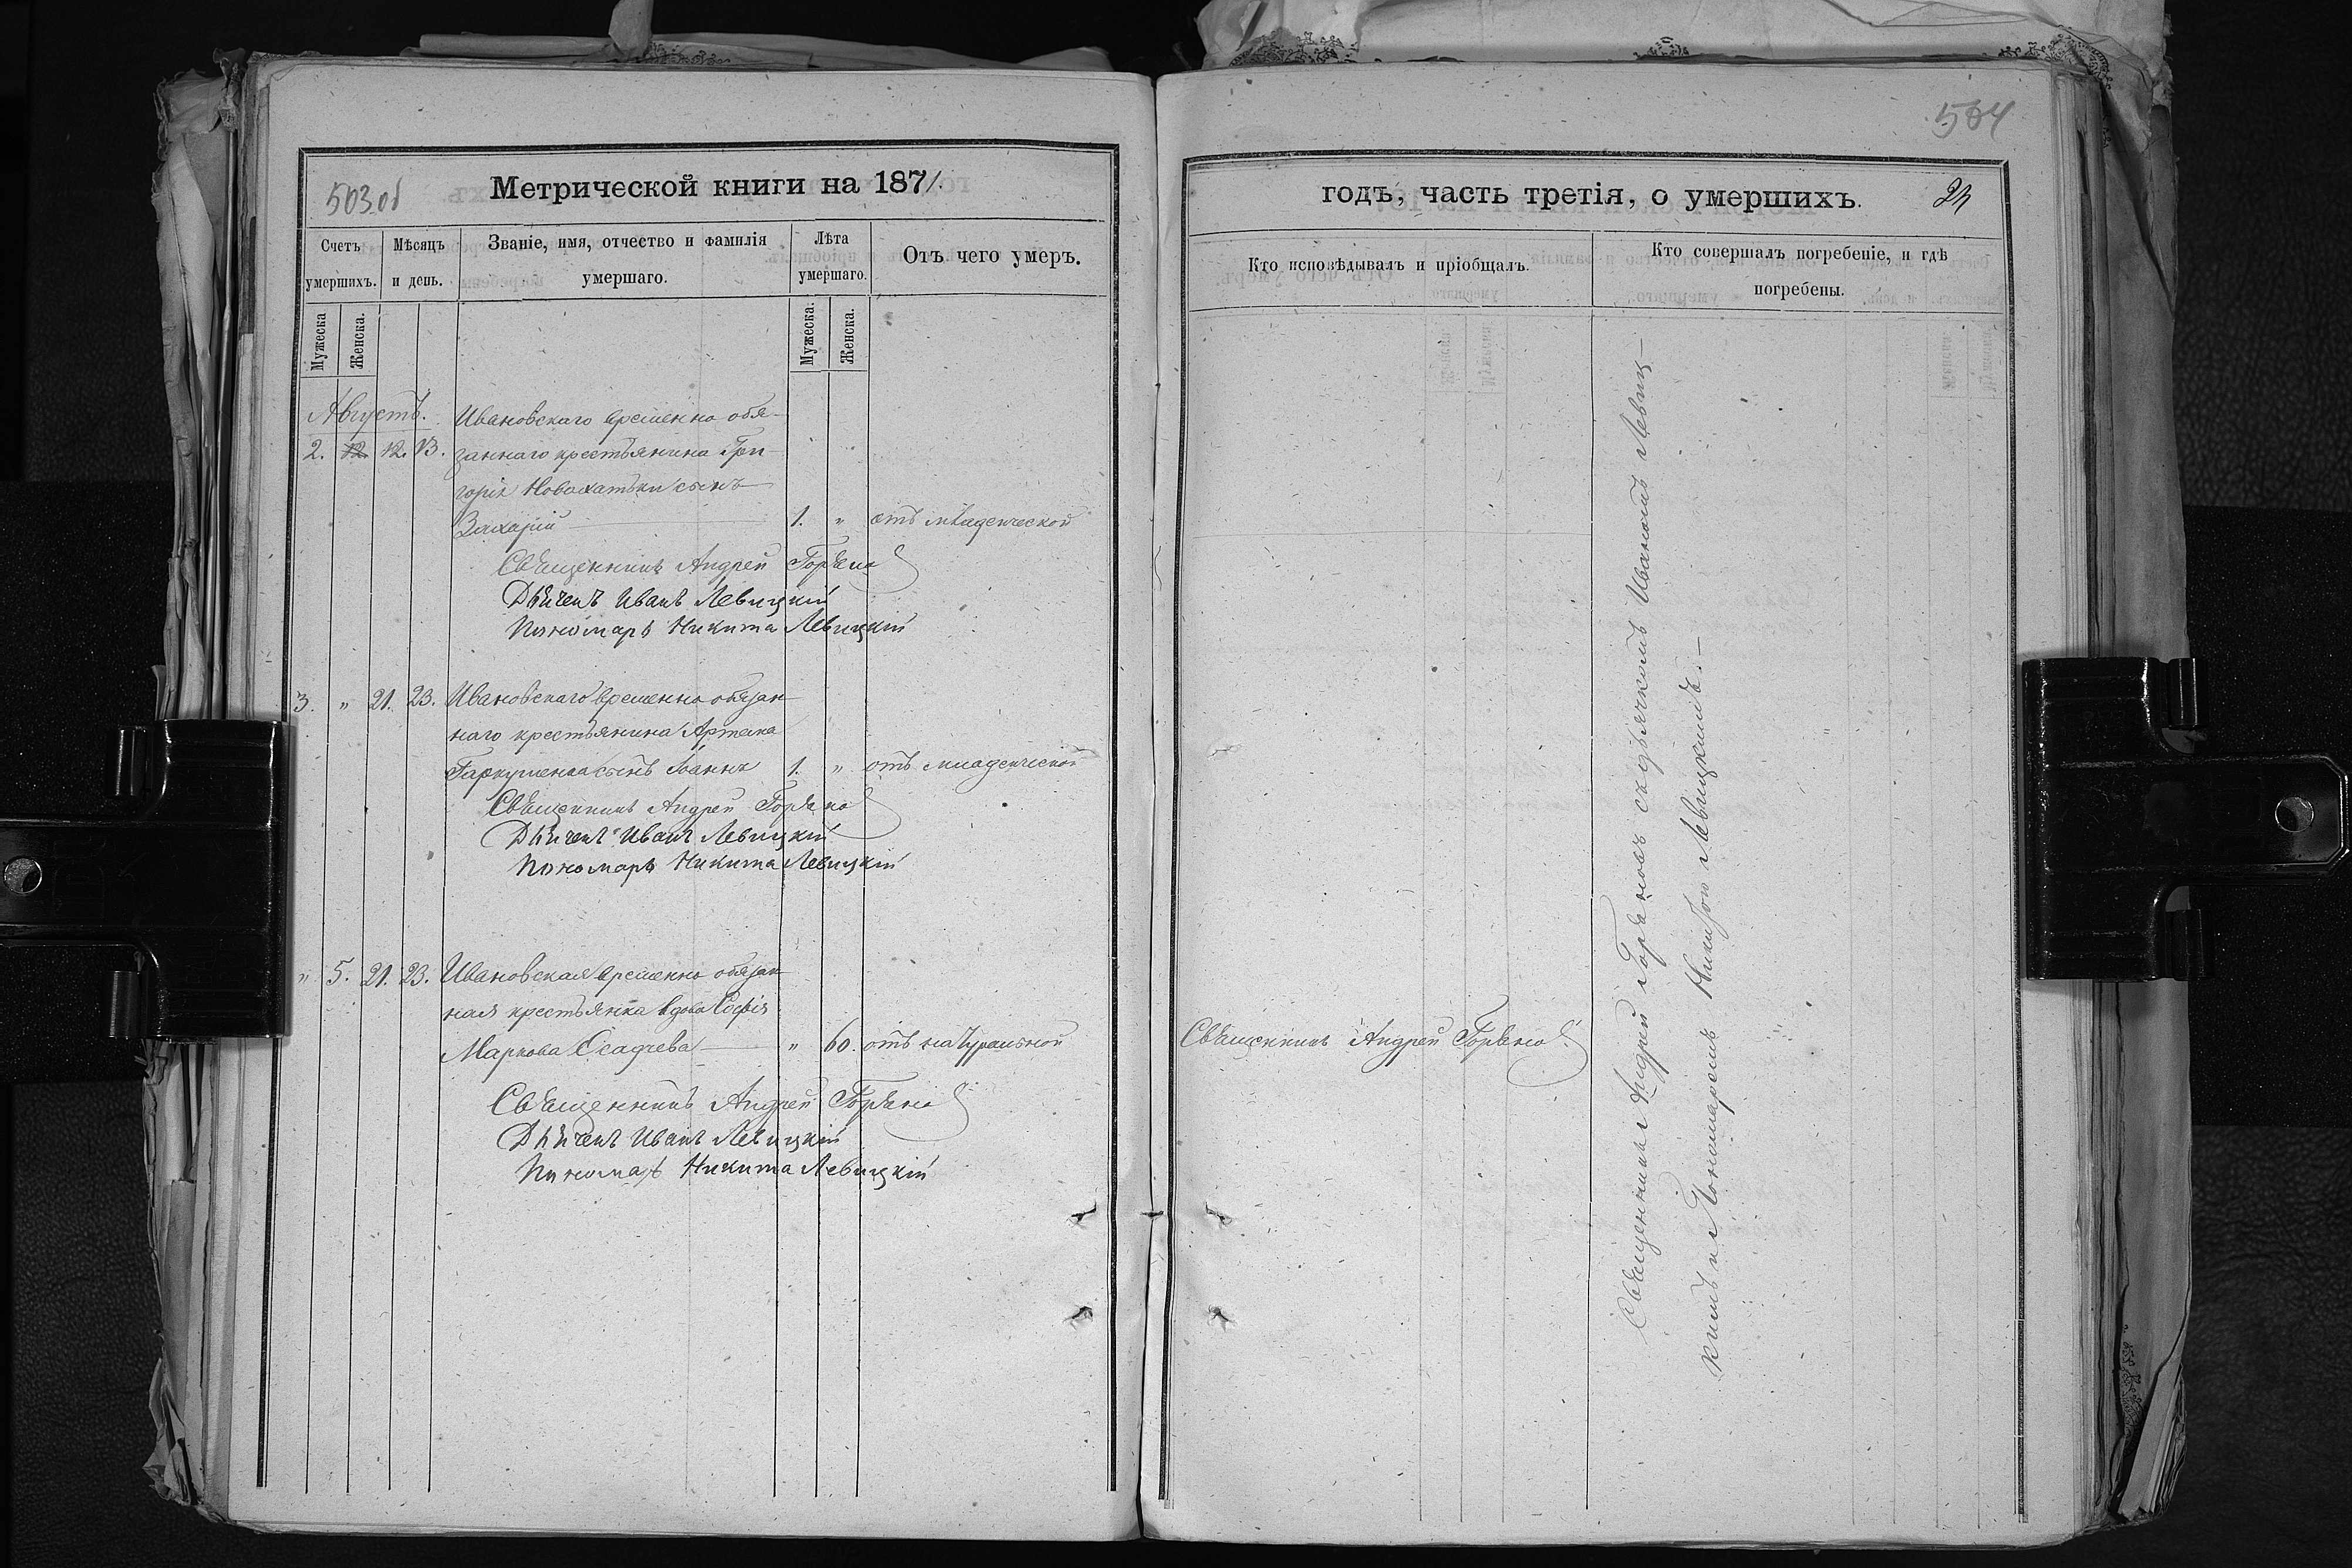 503 об
Метрической книги на 1871.
Счетъ умершихъ.
Мѣсяцъ и день.
Званіе, имя, отчество и фамилія умершаго.
Лѣта умершаго.
Отъ чего умеръ.
Мужеска
Женска.
Мужеска.
Женска.
Августъ.
Ивановскаго временно обя-
2. 12. 12. 13. заннаго крестьянина Гри-
горія Новохатьки сынъ
Захарій 1. " отъ младенческой
Священникъ Андрей Горѣно
Дьячекъ Иванъ Левицкій
Пономарь Никита Левицкій
3. " 21. 23. Ивановскаго временно обязан-
наго крестьянина Артема
Гаркушенка сынъ Іоаннъ 1. " отъ младенческой
Священникъ Андрей Горѣно
Дьячекъ Иванъ Левицкій
Пономарь Никита Левицкій
" 5. 21. 23. Ивановская временно обязан-
ная крестьянка вдова Софія
Маркова Осадчева " 60. отъ натуральной
Священникъ Андрей Горѣно
Дьячекъ Иванъ Левицкій
Пономарь Никита Левицкій
504
годъ, часть третія, о умершихъ. 24
Кто исповѣдывалъ и пріобщалъ.
Кто совершалъ погребеніе, и гдѣ погребены.
Священникъ Андрей Горѣно
Священникъ Андрей Горѣно съ дьячкомъ Иваномъ Левиц-
кимъ и Пономаремъ Никитою Левицкимъ.